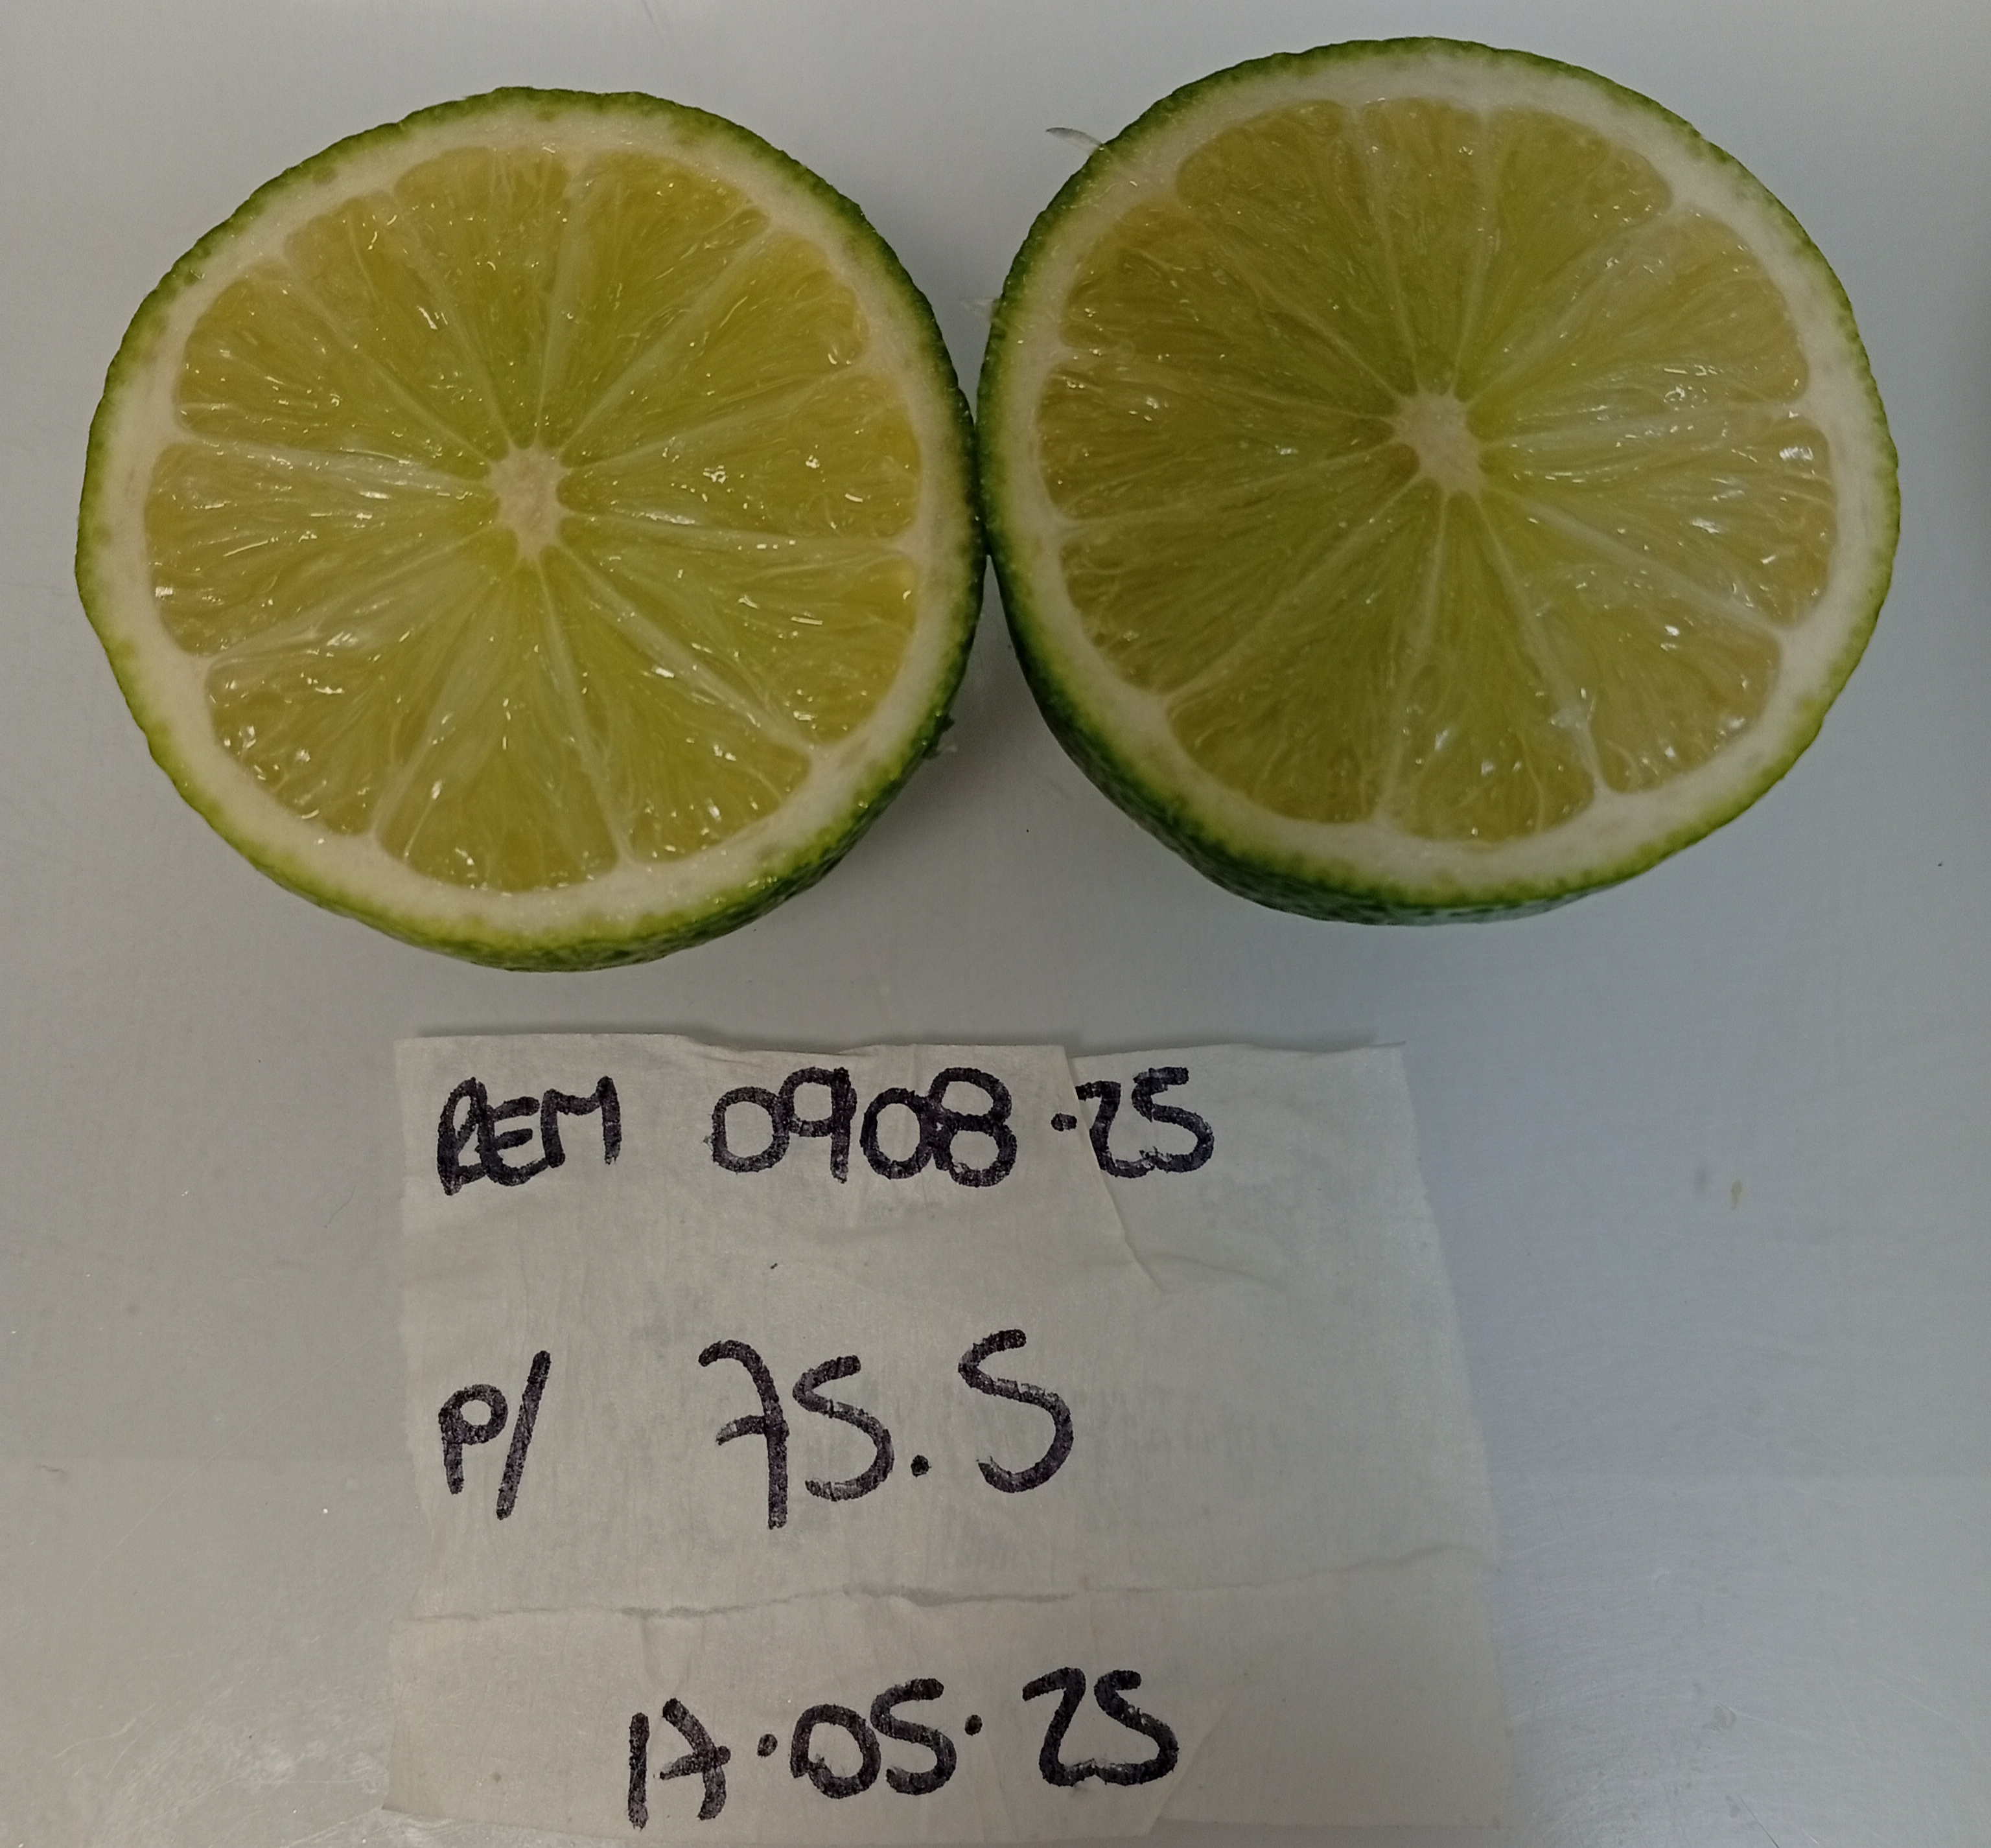 REM 0908.25
P/ 75.5
17.05.25